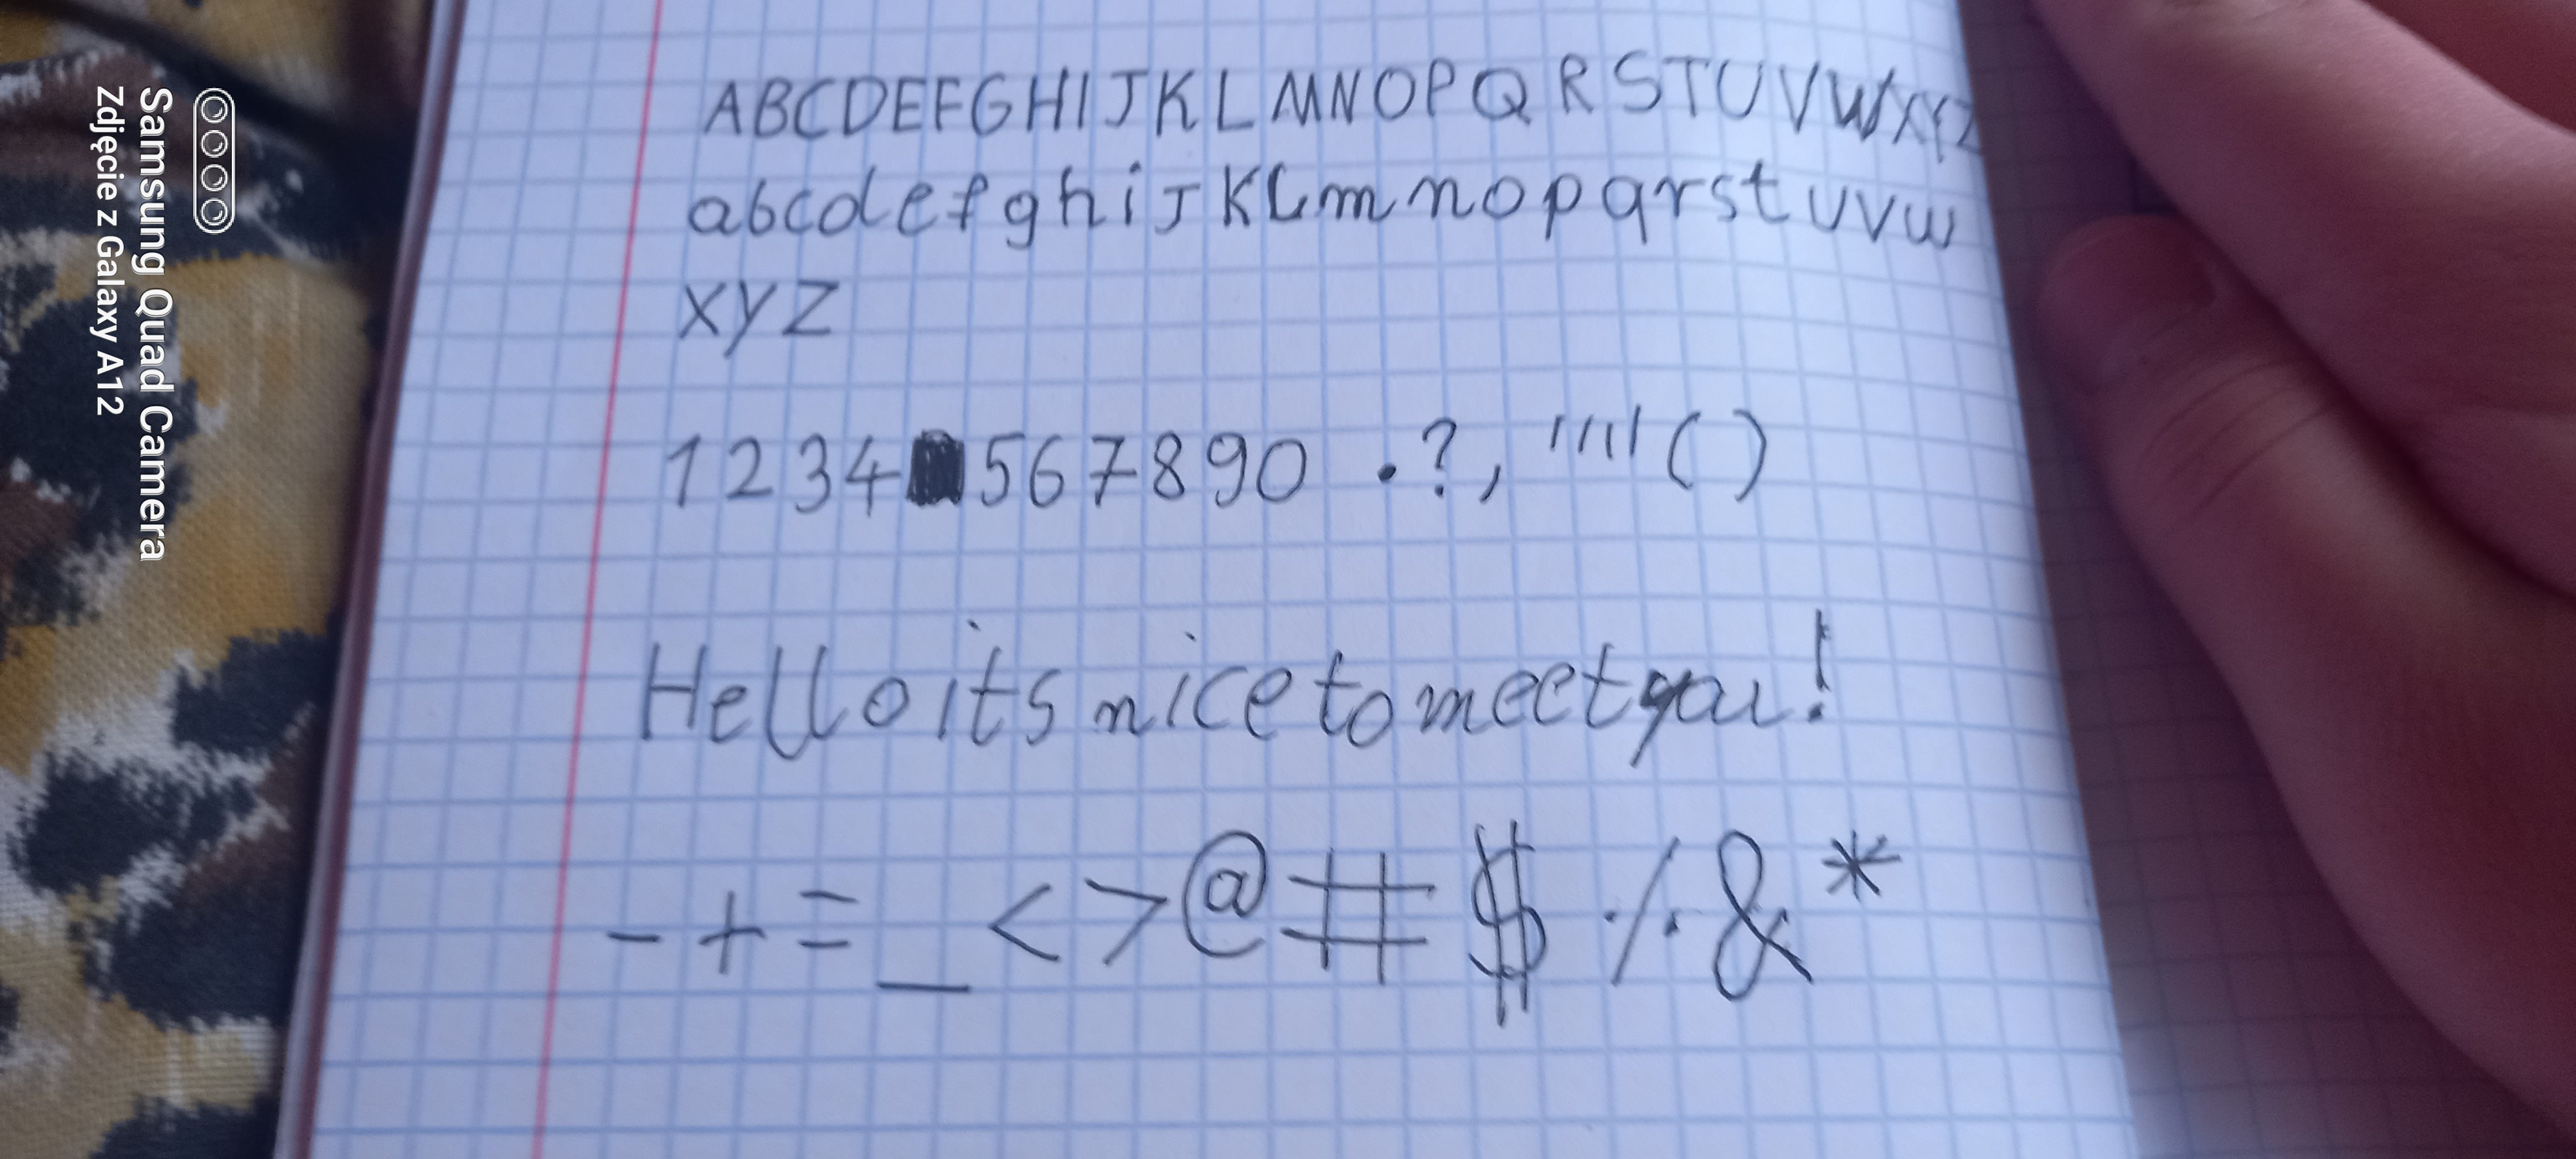 ABCDEFGHIJKLMNOPQRSTUVWXYZ
abcdefghijKLmnopqrstuvw
xyz
1234567890 .?, """()
Hello its nice to meet you!
-+=_<>@#$%&*
Samsung Quad Camera
Zdjęcie z Galaxy A12